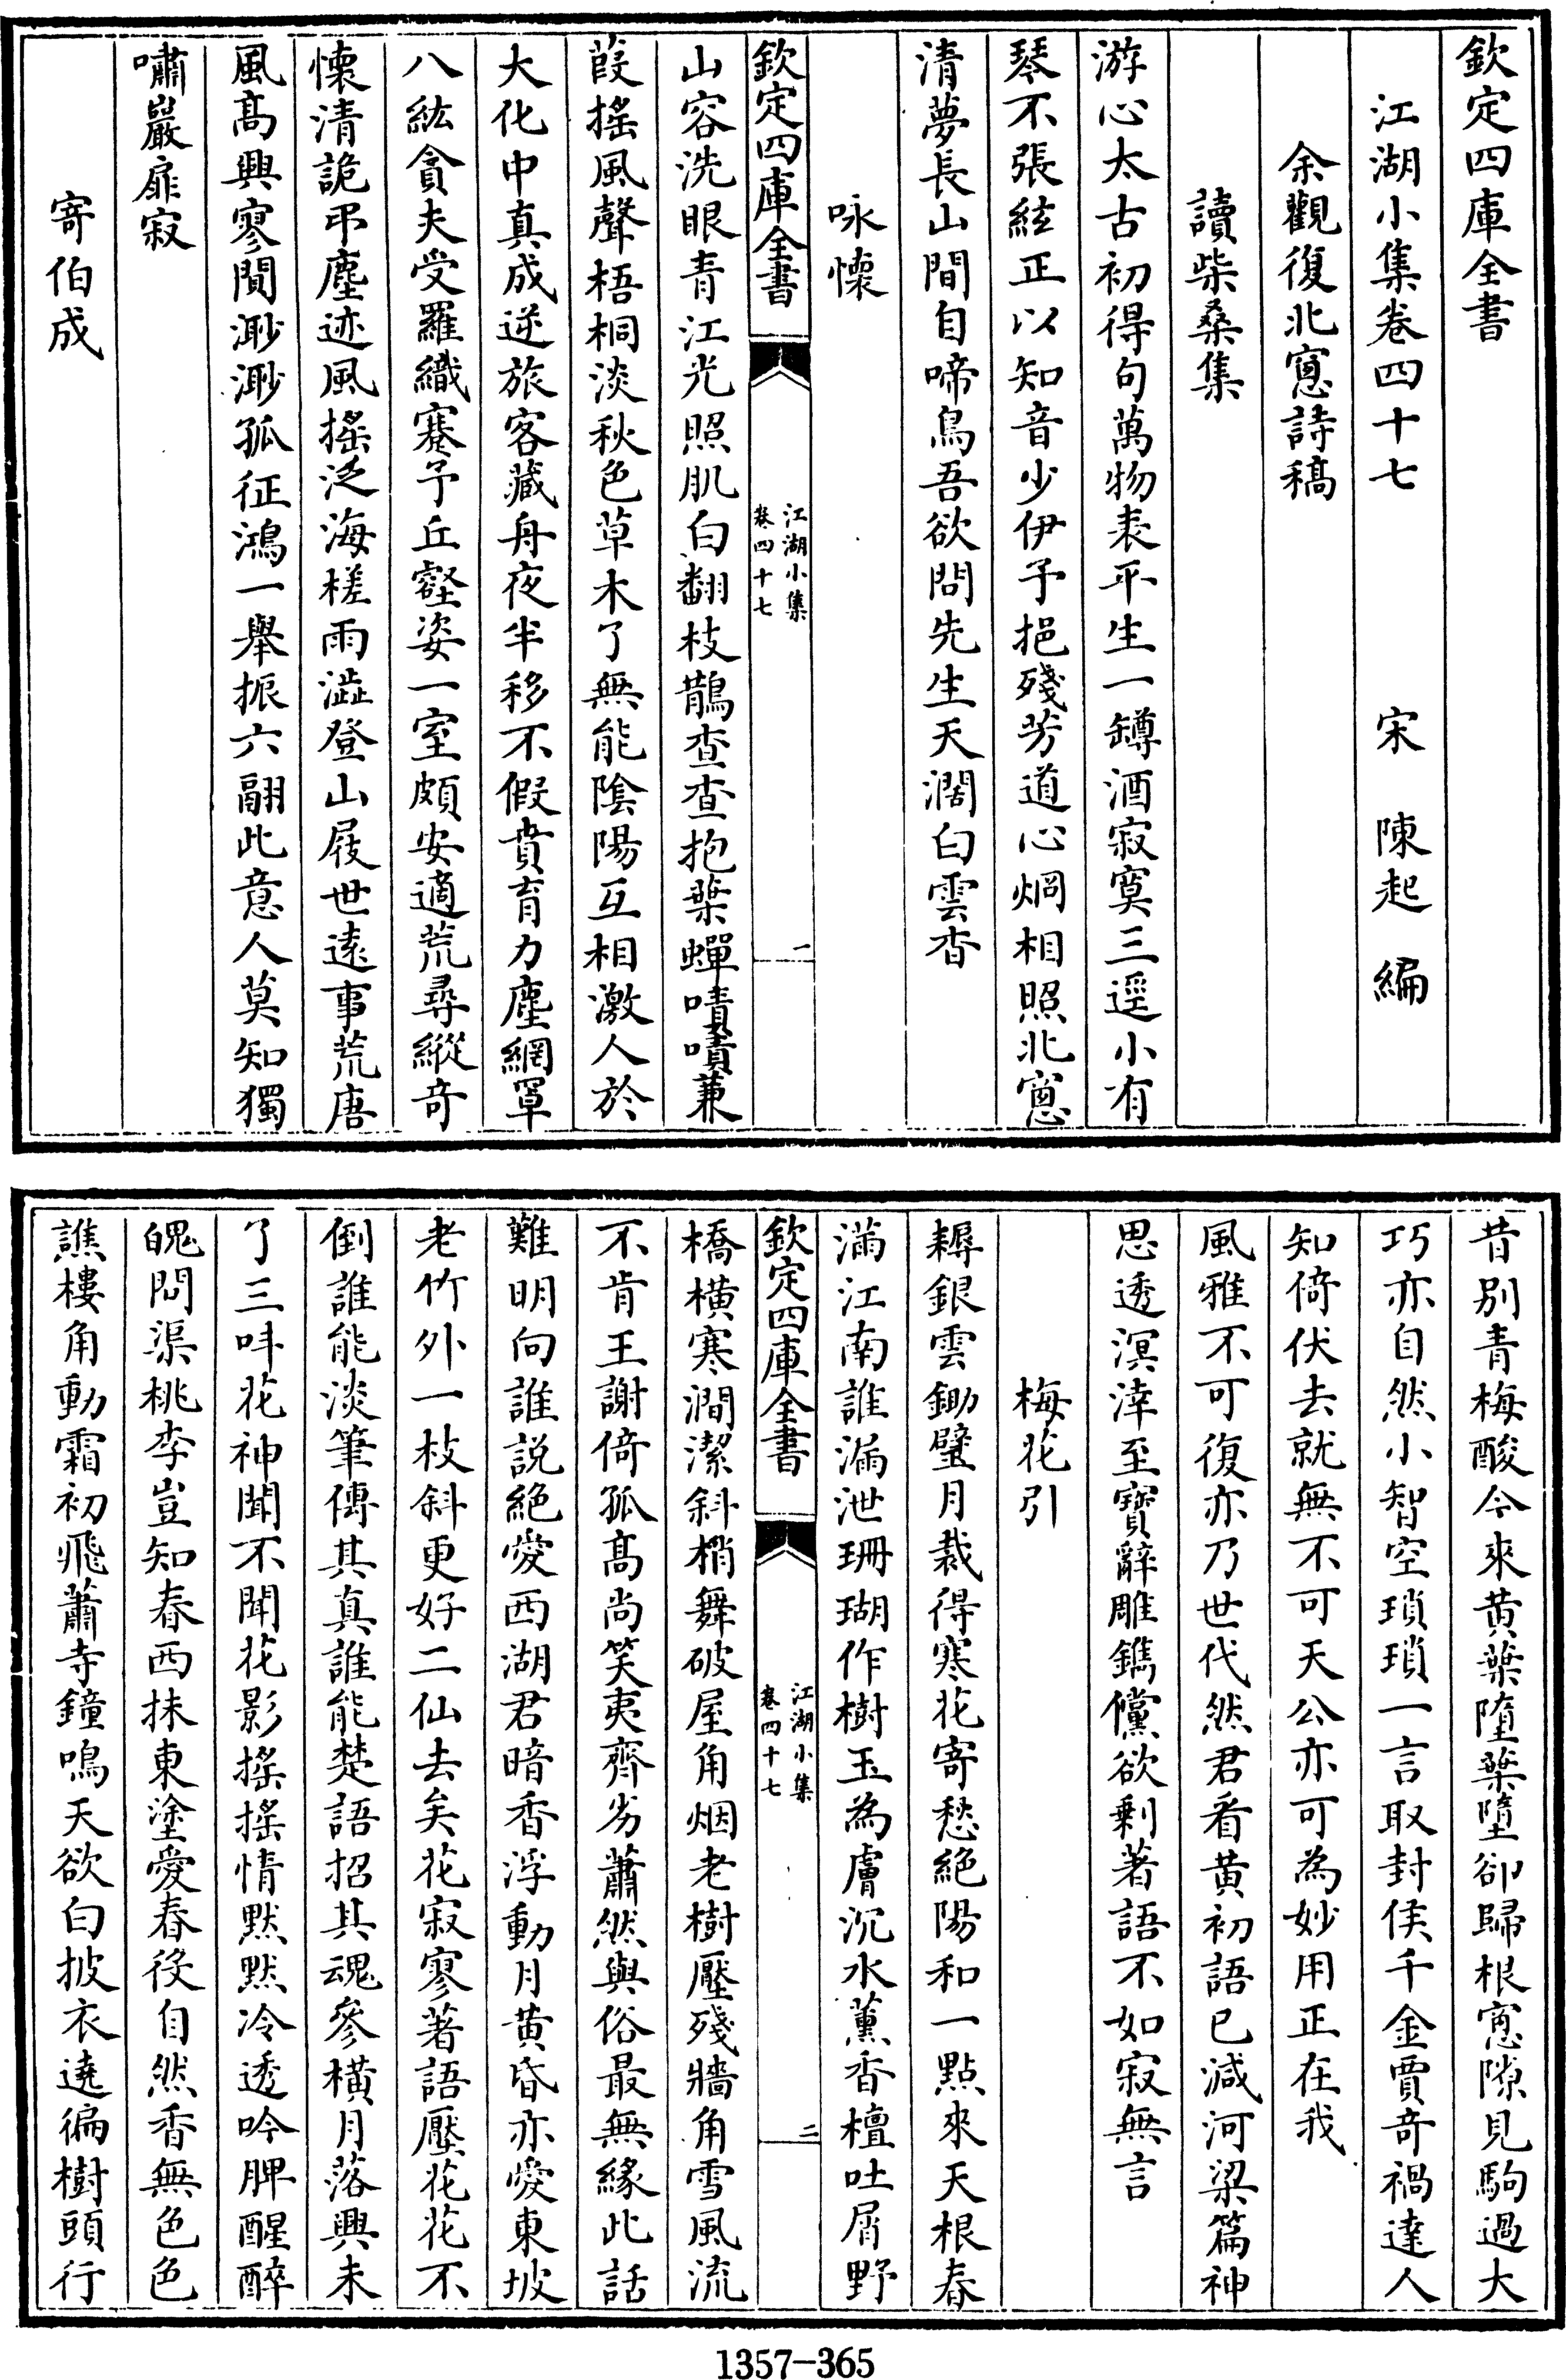 欽定四庫全書
江湖小集卷四十七　宋　陳起　編
余觀復北窻詩稿
讀柴桑集
游心太古初得句萬物表平生一罇酒寂寞三逕小有
琴不張絃正以知音少伊予挹殘芳道心烱相照北窻
清夢長山間自啼鳥吾欲問先生天濶白雲杳
咏懷
欽定四庫全書
江湖小集
卷四十七
一
山容洗眼青江光照肌白翻枝鵲查查抱葉蟬嘖嘖蒹
葭摇風聲梧桐淡秋色草木了無能隂陽互相激人於
大化中真成逆旅客藏舟夜半移不假賁育力塵網罩
八紘貪夫受羅織蹇予丘壑姿一室頗安適荒尋縱竒
懷清詭弔塵迹風摇泛海槎雨澁登山屐世遠事荒唐
風髙興寥闃渺渺孤征鴻一舉振六翮此意人莫知獨
嘯巖扉寂
寄伯成
昔别青梅酸今來黄葉墮葉墮卻歸根窻隙見駒過大
巧亦自然小智空瑣瑣一言取封侯千金賈竒禍達人
知倚伏去就無不可天公亦可為妙用正在我
風雅不可復亦乃世代然君看黄初語已減河梁篇神
思透溟涬至寳辭雕鐫儻欲剩著語不如寂無言
梅花引
耨銀雲鋤璧月裁得寒花寄愁絶陽和一點來天根春
滿江南誰漏泄珊瑚作樹玉為膚沉水薰香檀吐屑野
欽定四庫全書
江湖小集
卷四十七
二
橋横寒澗潔斜梢舞破屋角烟老樹壓殘牆角雪風流
不肯王謝倚孤髙尚笑夷齊劣蕭然與俗最無緣此話
難明向誰説絶愛西湖君暗香浮動月黄昏亦愛東坡
老竹外一枝斜更好二仙去矣花寂寥著語壓花花不
倒誰能淡筆傳其真誰能楚語招其魂參横月落興未
了三呌花神聞不聞花影摇摇情黙黙冷透吟脾醒醉
魄問渠桃李豈知春西抹東塗愛春役自然香無色色
譙樓角動霜初飛蕭寺鐘鳴天欲白披衣遶徧樹頭行
1357-365